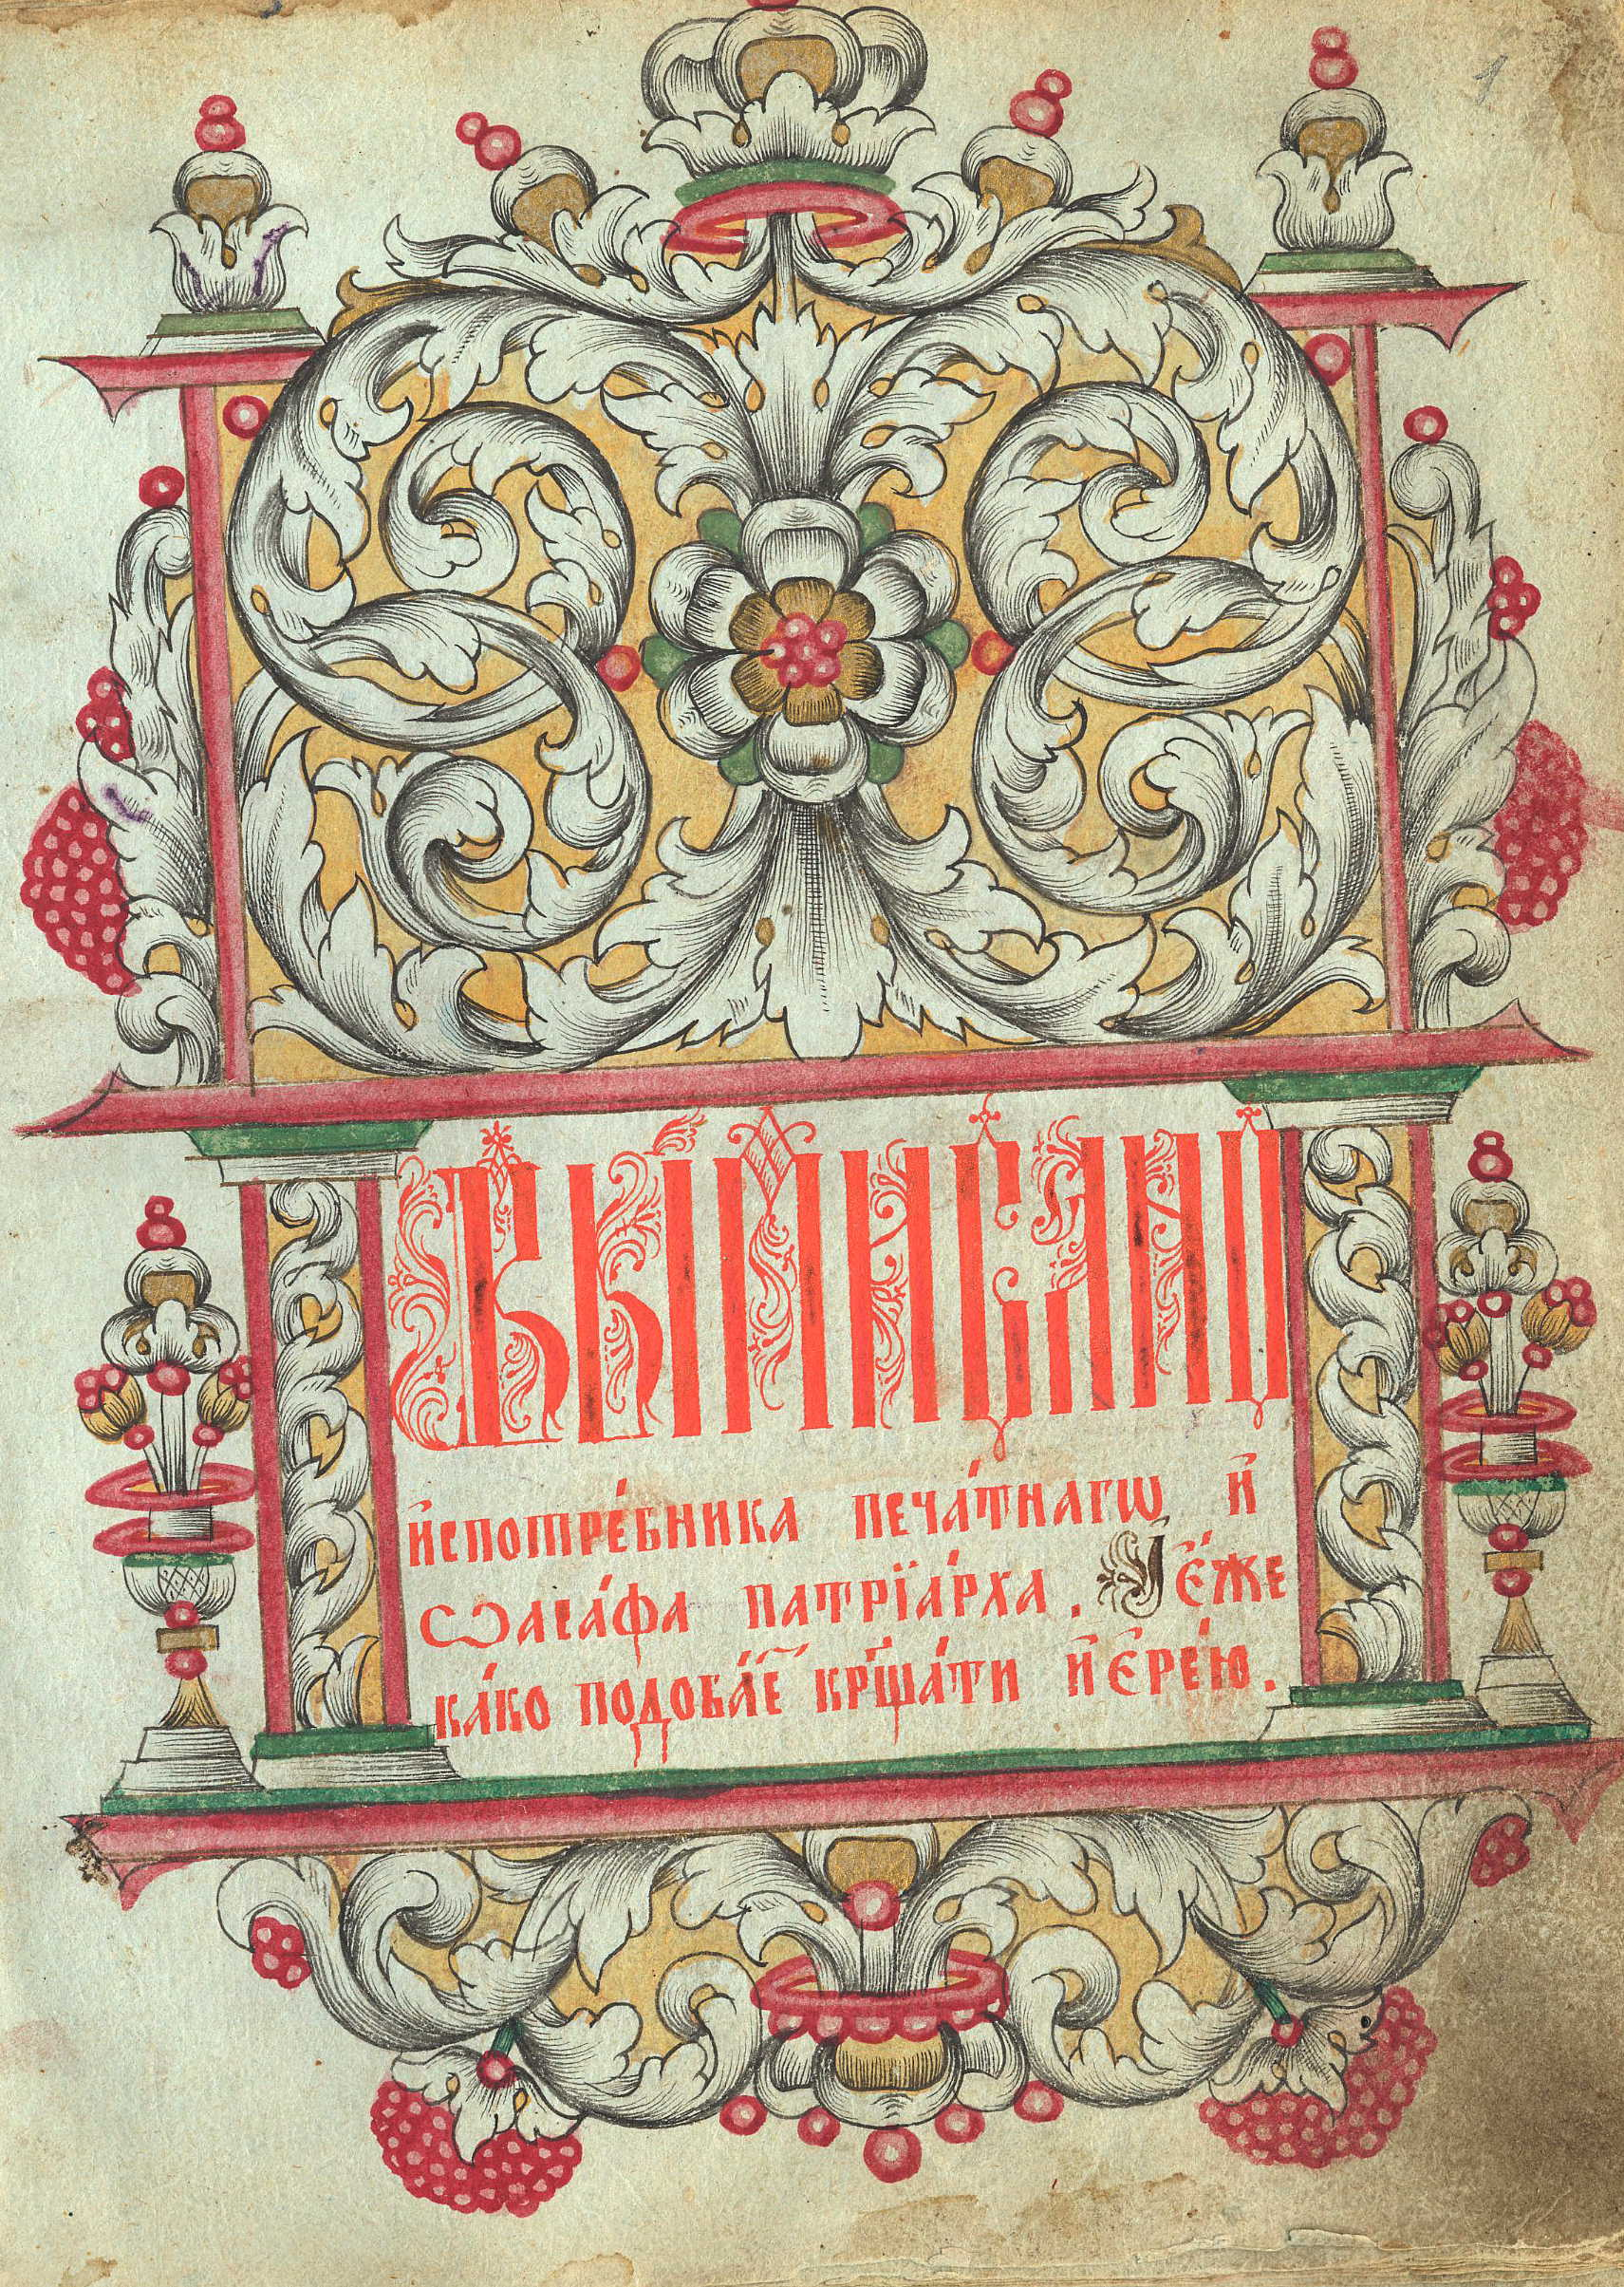 1
ВЫПИСАНО
и҆спотре́бника печа́тнагѡ и҆
ѡаса́фа патрїа́рха. Ѕ҃ є҆́же
ка́ко подоба́є҆ крⷭ҇ща́ти и҆є҆ре́ю.